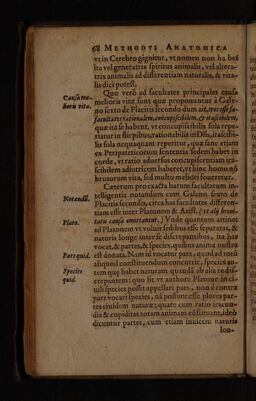 68 METHODVS ANATOMICA
vt in Cerebro gignitur, vt nomen non habeat
ita vel generatrix spiritus animalis, vel altera-
trix animalis ad differentiam naturalis, & vita-
lis dici potest.
Quo verò ad facultates principales causa
Causa me-
lioris vitæ.
melioris vitæ sunt quæ proponuntur à Gale-
no sexto de Placitis secundo dum ait,
facultates rationalem, concupiscibilem, & irascibilem,
quæ ita se habent, vt concupiscibilis sola repe-
riatur in stirpibus, rationabilis in Diis, irascibi-
lis sola nequaquam reperitur, quæ sane etiam
ex Peripateticorum sententia sedem habet in
corde, vt ratio aduersus concupiscentiam ira-
scibilem adiutricem haberet, vt hinc homo
brutorum vita, sed multo melidi foueretur.
Cæterum pro exacta harum facultatum in-
Notandũ.
telligentia notandum cum Galeno sexto de
Placitis secundo, circa has facultates differen-
tiam esse inter Platonem & Arist.
Plato.
Vnde quantum attinet
ad Platonem vt voluit sedibus esse separatas, &
naturis longe inter se discrepantibus, ita has
vocat, & partes, & species, quibus anima nostra
Pars quid.
est donata. Nam id vocatur pars, quod ad totũ
aliquod constituendum concurrit, species au-
Species
quid.
tem quæ habet naturam quandã ab alia re dis-
crepantem: quo fit vt auctore Platone in ci-
uili species possit appellari pars, non è contra
pars vocari species, nã possunt esse plures par-
tes eiusdem naturæ; quare cum ratio iracun-
dia & cupiditas totam animam cõstituant, ideò
dicuntur partes, cum etiam inuicem naturis
lon-